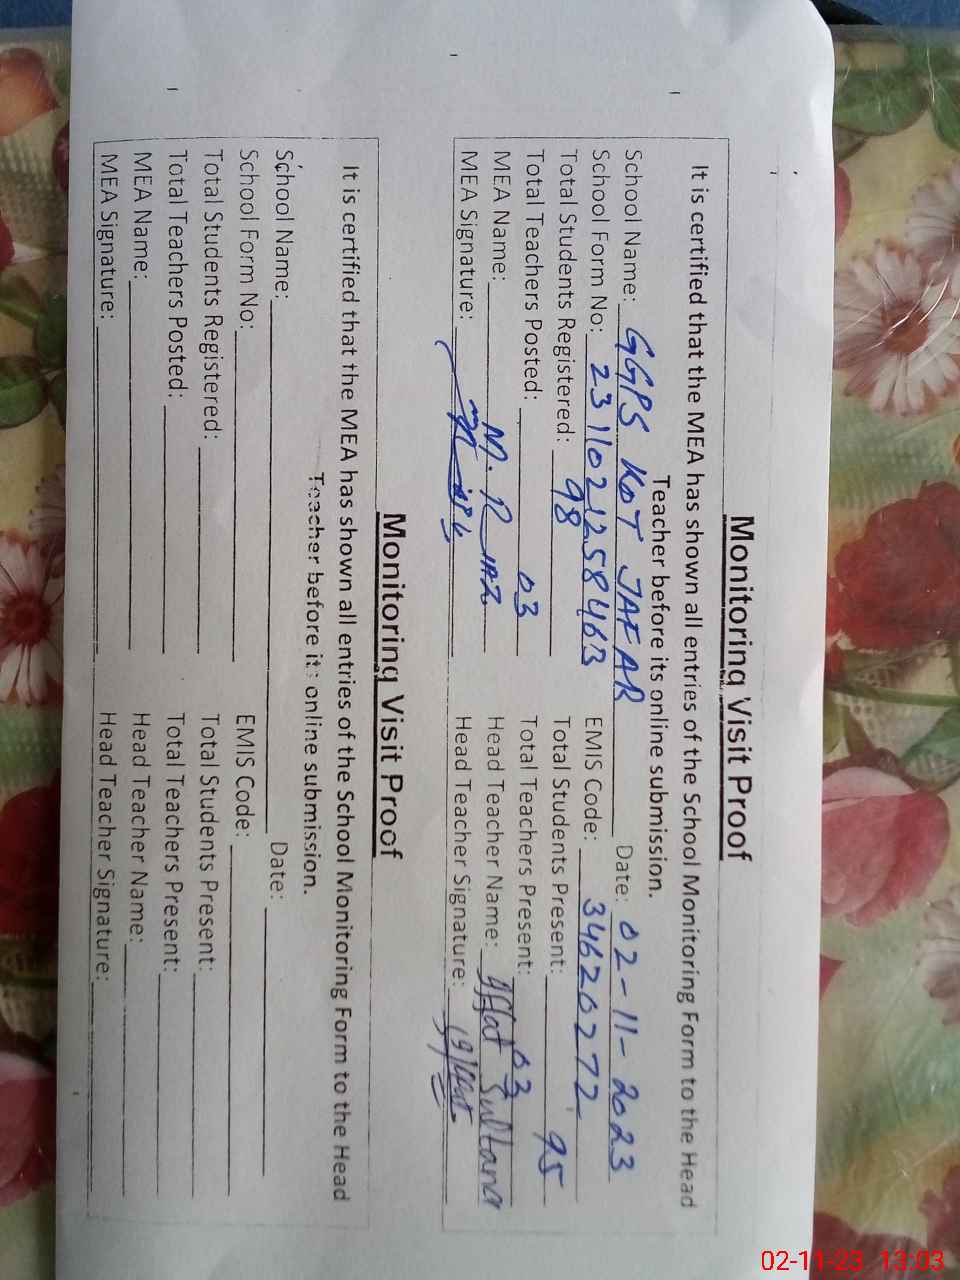 Monitoring Visit Proof
It is certified that the MEA has shown all entries of the School Monitoring Form to the Head
Teacher before its online submission.
School Name: GGPS KOT JAFAR Date: 02-11-2023
School Form No: 2311021258463 EMIS Code: 34620272
Total Students Registered: 98 Total Students Present: 95
Total Teachers Posted: 03 Total Teachers Present: 03
MEA Name: M. Riaz Head Teacher Name: Iffat Sultana
MEA Signature: Head Teacher Signature:
Monitoring Visit Proof
It is certified that the MEA has shown all entries of the School Monitoring Form to the Head
Teacher before its online submission.
School Name: Date:
School Form No: EMIS Code:
Total Students Registered: Total Students Present:
Total Teachers Posted: Total Teachers Present:
MEA Name: Head Teacher Name:
MEA Signature: Head Teacher Signature:
02-11-23 13:03